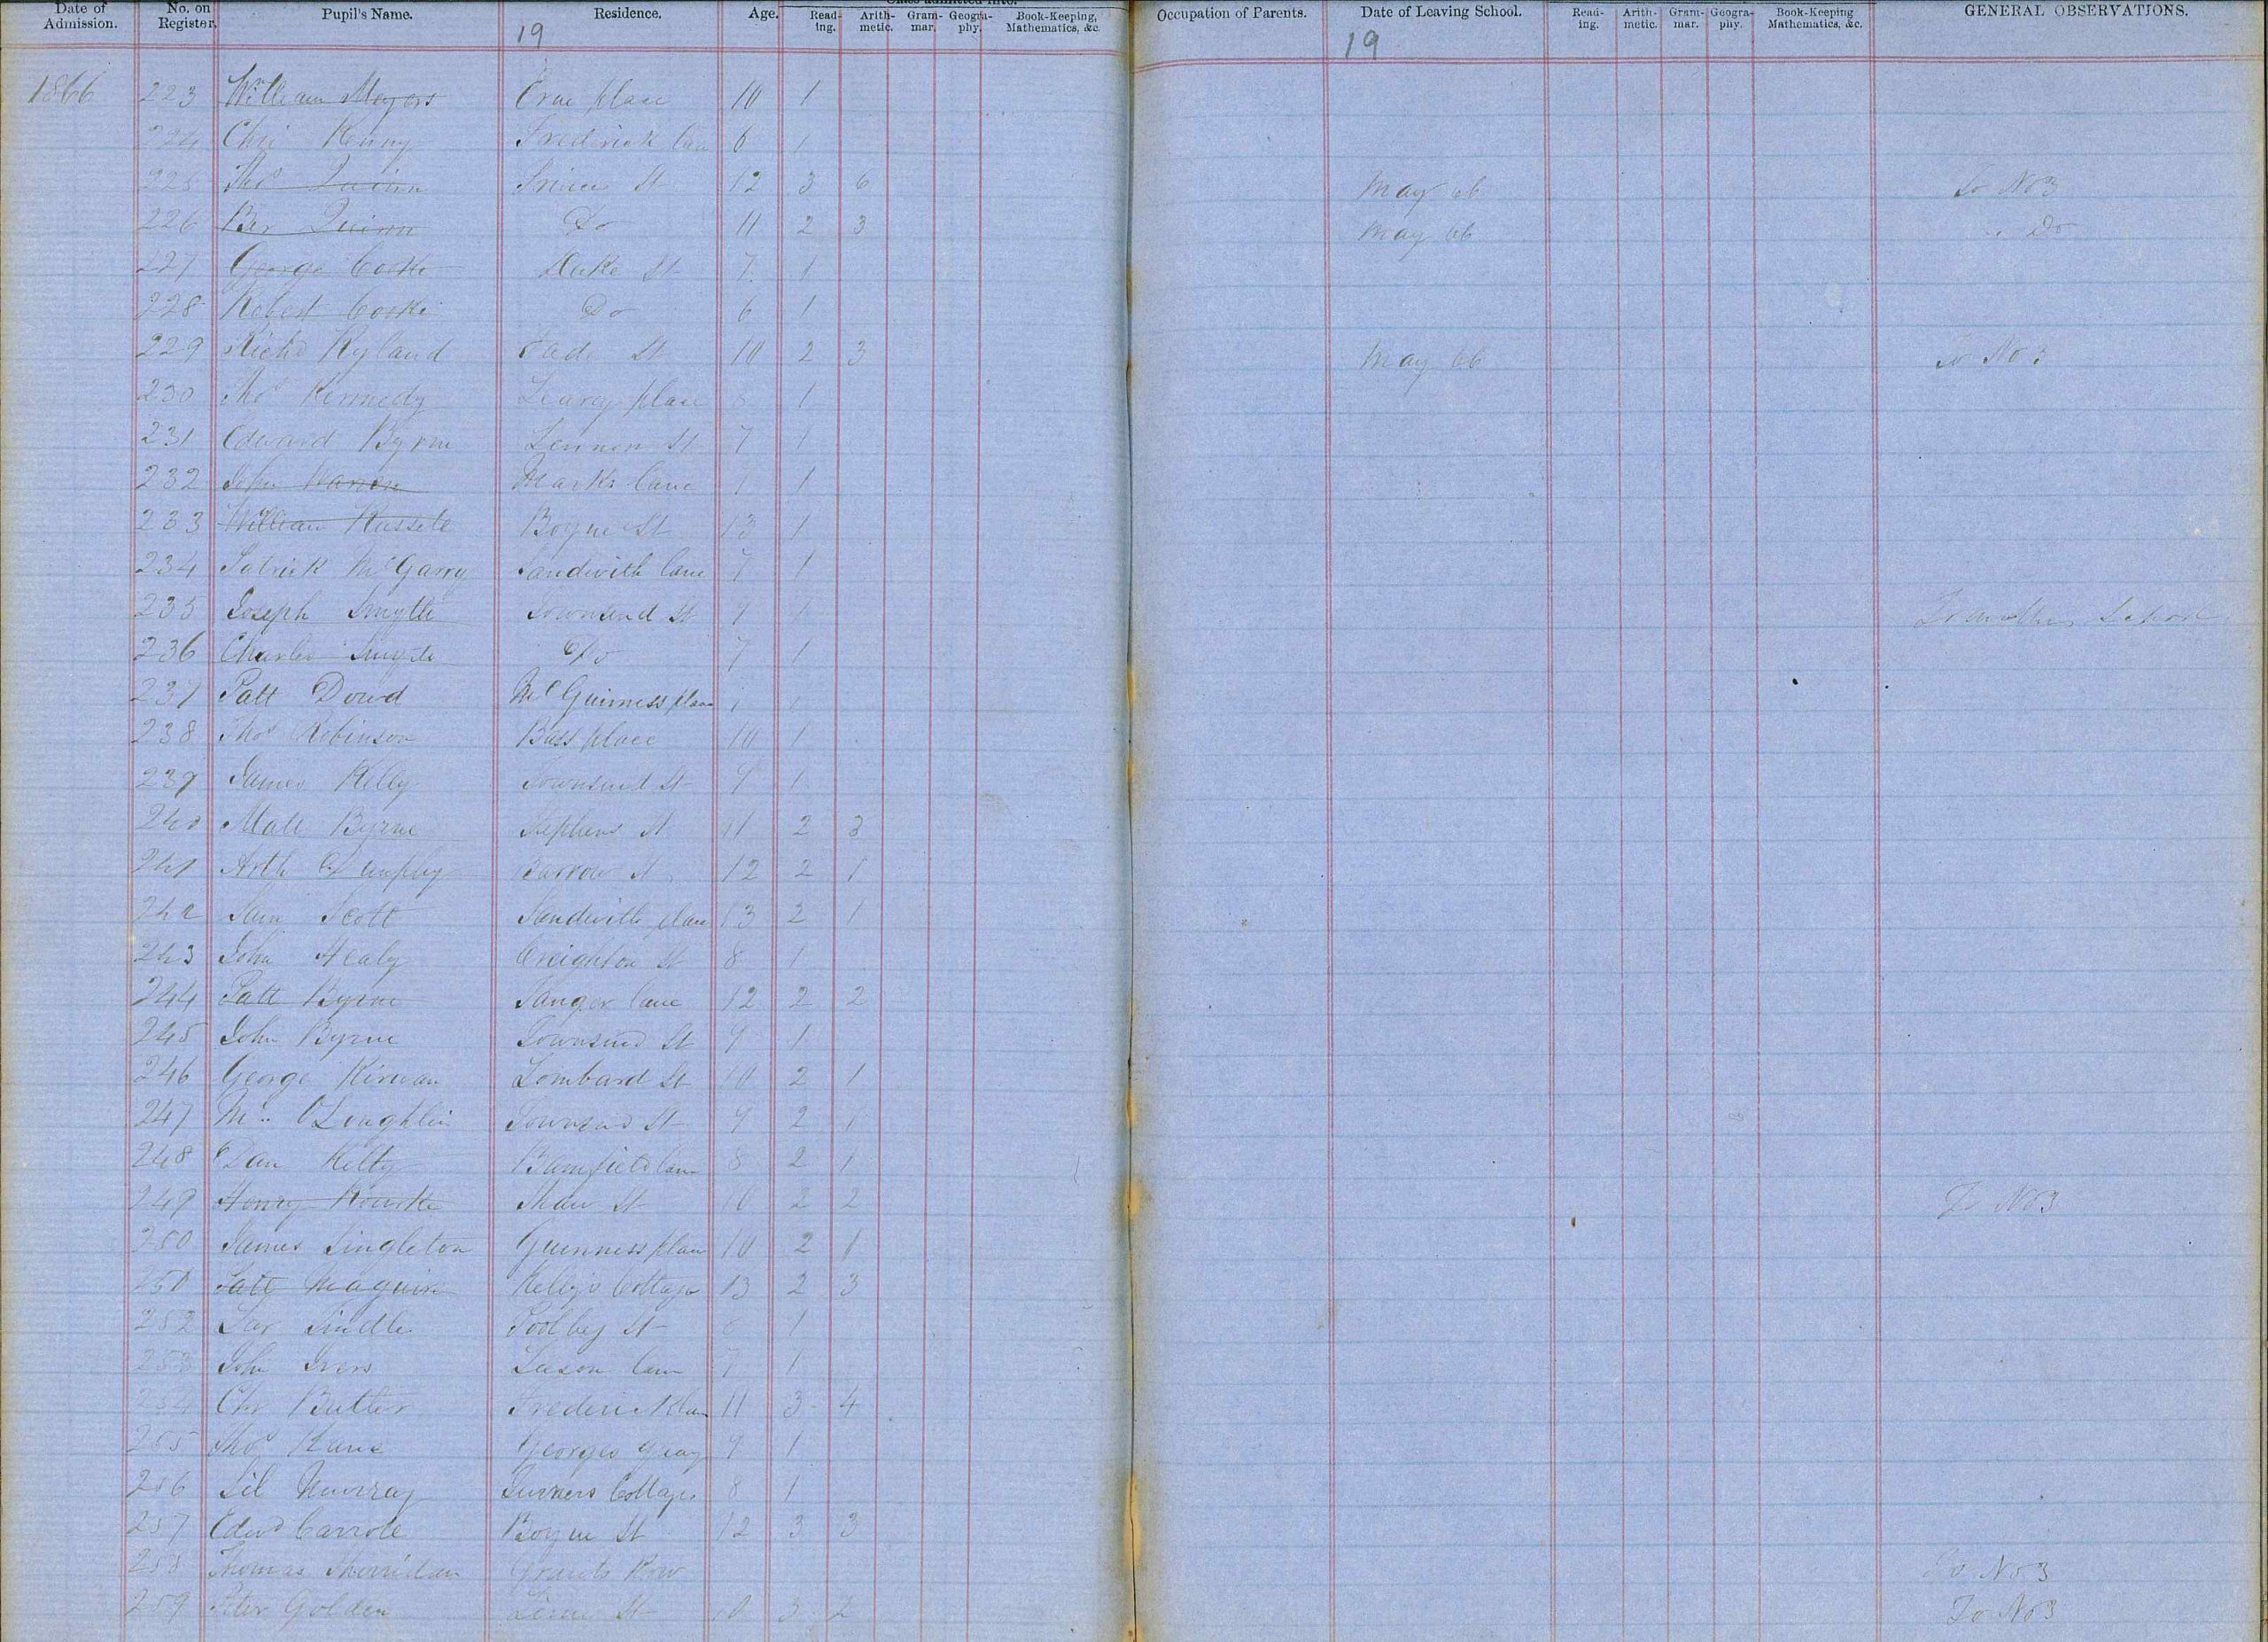 Date of Admission. No. on Register. Pupil's Name. Residence. Age. Class admitted into. Read-ing. Arith-metic. Gram-mar. Geogra-phy. Book-Keeping, Mathematics, &c. Occupation of Parents. Date of Leaving School. Read-ing. Arith-metic. Gram-mar. Geogra-phy. Book-Keeping Mathematics, &c. GENERAL OBSERVATIONS.
19 19
1866 223 William Meyers place 10 1
224 Chri Kenny Frederick lane 6 1
225 Thos Quinn Princes St 12 3 6 May 66 To No 3
226 Ber Quinn Do 11 2 3 May 66 Do
227 George Cooke Duke St 7 1
228 Robert Cooke Do 6 1
229 Richd Ryland Fade St 10 2 3 May 66 To No 3
230 Thos Kennedy Leary place 8 1
231 Edward Byrne Lennon St 7 1
232 John Marks lane 1
233 William Russele Boyne St 13 1
234 Patrick McGarry Sandwith lane 7 1
235 Joseph Smyth Townsend St 1 To another School
236 Charles Smyth Do 7 1
237 Patt Dowd McGuinness place
238 Thos Robinson Bass place 10 1
239 James Kelly Townsend St 9 1
240 Matt Byrne Stephens St 11 2 3
241 Arth Dunphy Barrow St 12 2 1
242 Sam Scott Sandwith place 13 2 1
243 John Healy Creighton St 8 1
244 Patt Byrne Sanger lane 12 2 2
245 John Byrne Townsend St 9 1
246 George Kirwan Lombard St 10 2 1
247 O'Loughlin Townsend St 9 2 1
248 Dan Kelly Bamfield lane 8 2 1
249 Henry Rourke Shaw St 10 2 2 To No 3
250 James Singleton Guinness place 10 2 1
251 Patt Maguire Kelly's Cottage 13 2 3
252 Poolbeg St 1
253 John Ivers Leson lane 7 1
254 Chr Butler Frederick lane 11 3 4
255 Thos Kane Georges Quay 9 1
256 Sil Murray Turners Cottages 8 1
257 Edwd Carrole Boyne St 12 3 3
258 Thomas Sherridan Grants Row To No 3
259 Peter Golden Lime St 10 3 2 To No 3